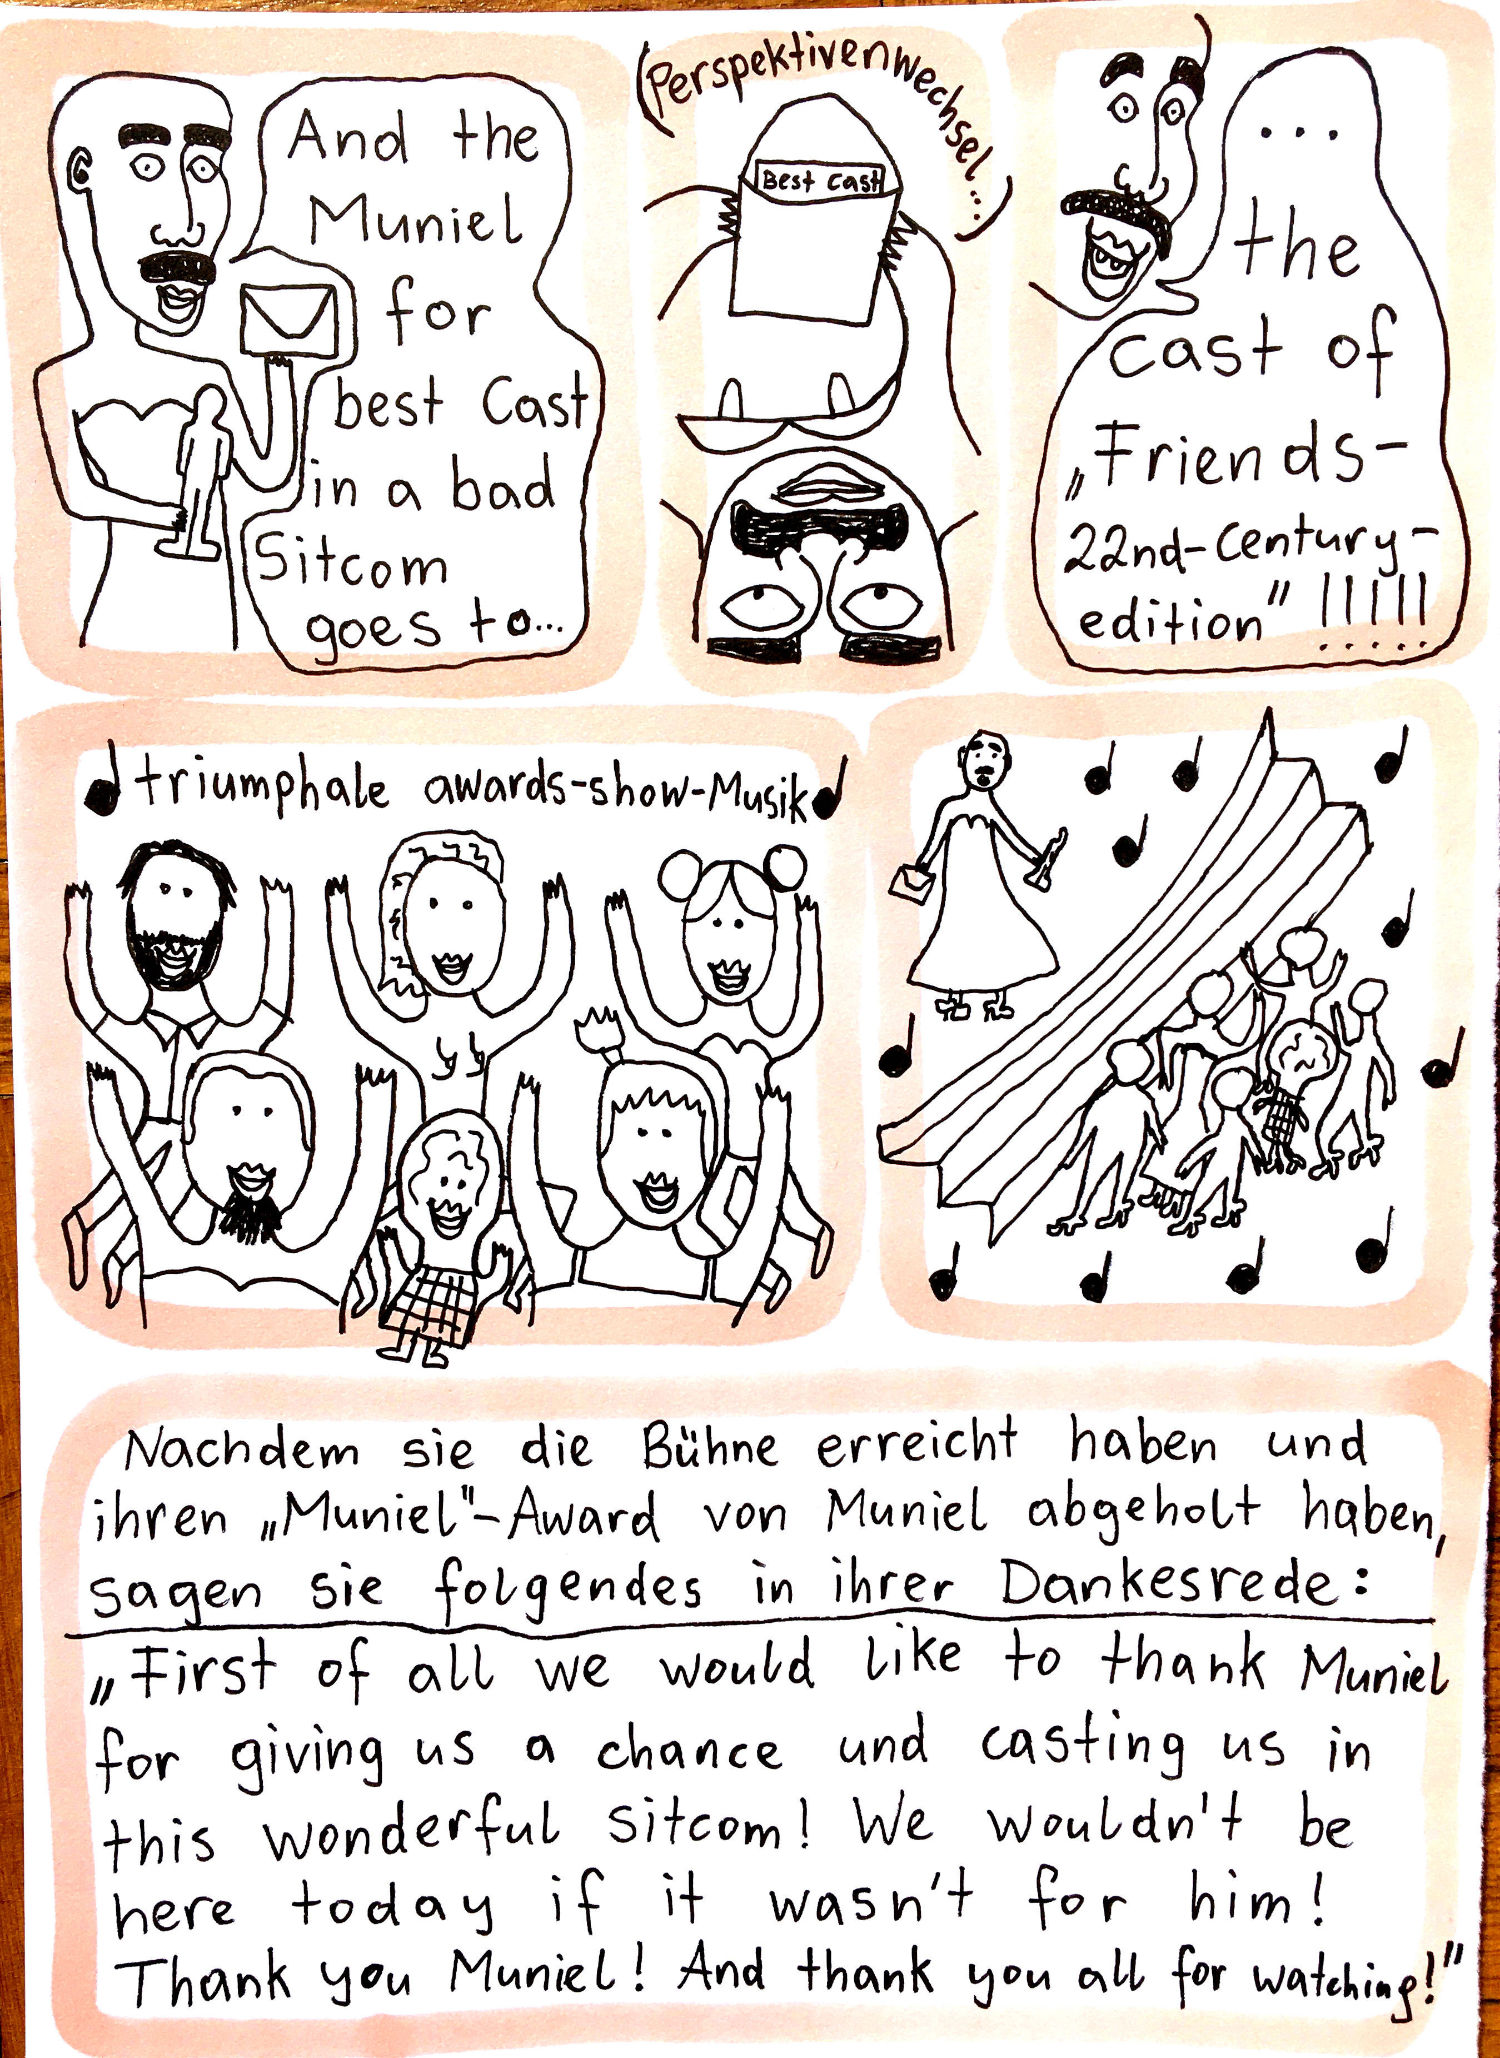 And the
Muniel
for
best Cast
in a bad
Sitcom
goes to...
(Perspektivenwechsel...)
Best Cast
...
the
cast of
„Friends-
22nd-Century-
edition" !!!!!
triumphale awards-show-Musik
Nachdem sie die Bühne erreicht haben und
ihren „Muniel"-Award von Muniel abgeholt haben,
sagen sie folgendes in ihrer Dankesrede:
„First of all we would like to thank Muniel
for giving us a chance und casting us in
this wonderful sitcom! We wouldn't be
here today if it wasn't for him!
Thank you Muniel! And thank you all for watching!"